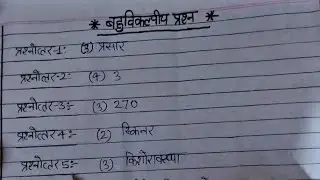 * बहुविकल्पीय प्रश्न *
प्रश्नोत्तर-1:- (3) प्रसार
प्रश्नोत्तर-2:- (4) 3
प्रश्नोत्तर-3:- (3) 270
प्रश्नोत्तर 4:- (2) स्किनर
प्रश्नोत्तर 5:- (3) किशोरावस्था